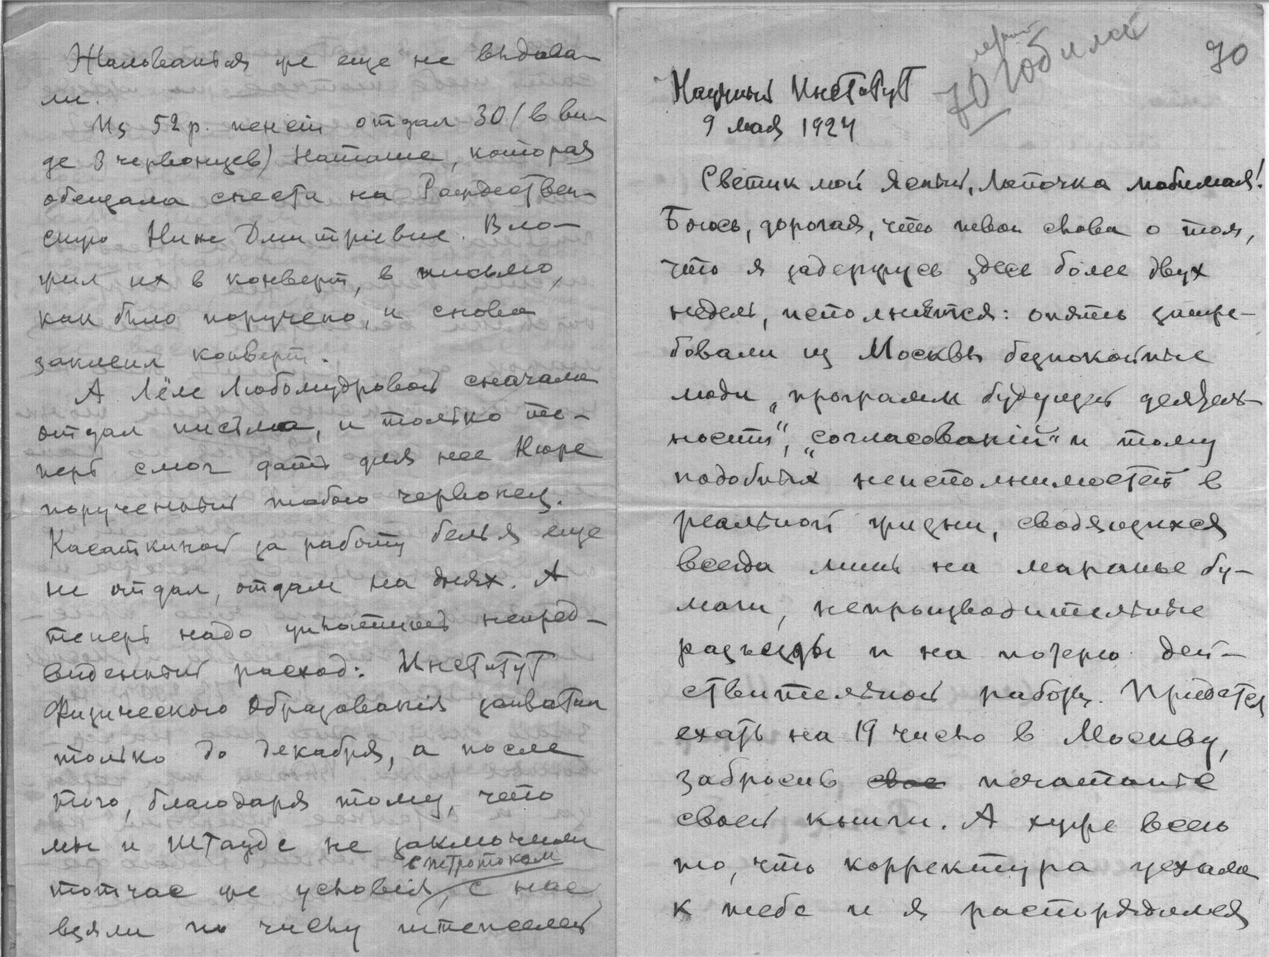 Жалованья уже еще не выдава-
ли.
Из 52 р. пенсии отдал 30 (в ви-
де 3 червонцев) Наташе, которая
обещала снести на Рождествен-
скую Нине Дмитріевне. Вло-
жил их в конверт, в письмо,
как было поручено, и снова
заклеил конверт.
А Лёле Любомудровой сначала
отдал письма, и только те-
перь смог дать для нее Нюре
порученный тобою червонец.
Касаткиной за работу белья еще
не отдал, отдам на днях. А
теперь надо уплатить непред-
виденный расход: Институт
Физического Образованія заплатил
только до декабря, а после
того, благодаря тому, что
мы и Штауде не заключили
с Петротоком
тотчас же условія, с нас
взяли по числу штепселей
70
70 Юбилей
Научный Институт
9 мая 1924
Светик мой Ясный, Лапочка любимая!
Боюсь, дорогая, что певои снова о том,
что я задержусь здесь более двух
недель, исполнится: опять затре-
бовали из Москвы безпокойные
люди „программ будущей деятель-
ности", „согласованій" и тому
подобных неисполнимостей в
реальной жизни, сводящихся
всегда лишь на маранье бу-
маги, непроизводительные
разъезды и на потерю дей-
ствительной работы. Придется
ехать на 19 число в Москву,
забросив свое печатаніе
своей книги. А хуже всего
то, что корректура уехала
к тебе и я распорядился